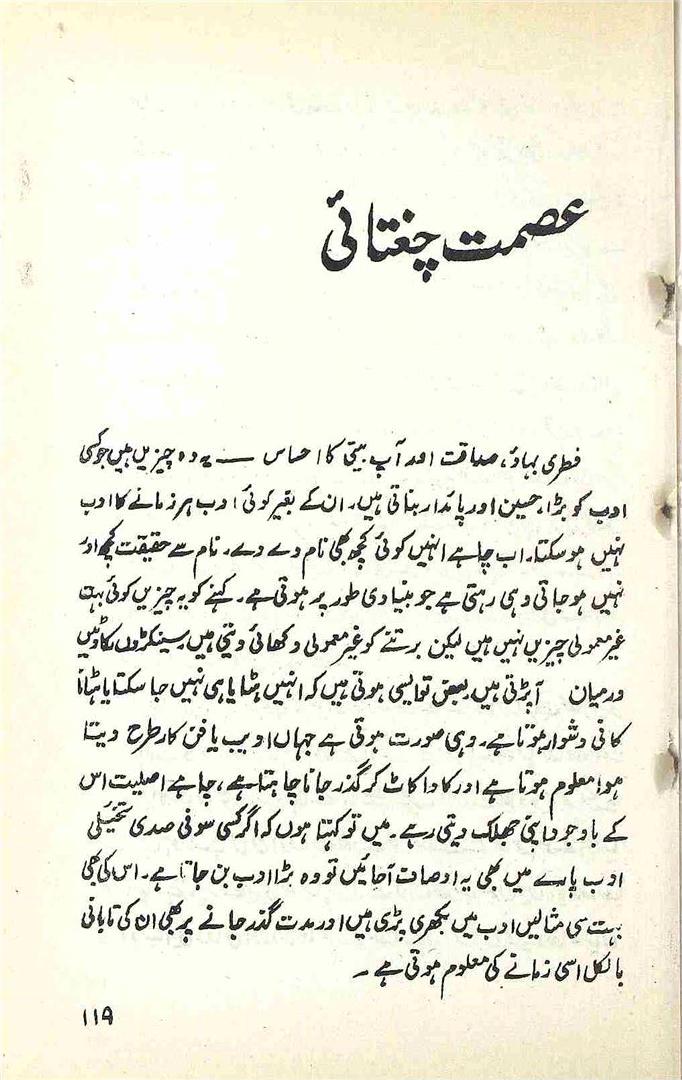 عصمت چغتائی
فطری بہاؤ، صداقت اور آپ بیتی کا احساس — یہ وہ چیزیں ہیں جو کسی
ادب کو بڑا، حسین اور پائدار بناتی ہیں۔ ان کے بغیر کوئی ادب ہر زمانے کا ادب
نہیں ہو سکتا۔ اب چاہے انہیں کوئی کچھ بھی نام دے دے۔ نام سے حقیقت کچھ اور
نہیں ہو جاتی وہی رہتی ہے جو بنیادی طور پر ہوتی ہے۔ کہنے کو یہ چیزیں کوئی بہت
غیر معمولی چیزیں نہیں ہیں لیکن برتنے کو غیر معمولی دکھائی دیتی ہیں۔ سینکڑوں رکاوٹیں
درمیان آپڑتی ہیں۔ بعض تو ایسی ہوتی ہیں کہ انہیں ہٹایا ہی نہیں جا سکتا یا ہٹانا
کافی دشوار ہوتا ہے۔ وہی صورت ہوتی ہے جہاں ادیب یا فن کار طرح دیتا
ہوا معلوم ہوتا ہے اور کاوا کاٹ کر گذر جانا چاہتا ہے، چاہے اصلیت اس
کے باوجود اپنی جھلک دیتی رہے۔ میں تو کہتا ہوں کہ اگر کسی سوفی صدی تخئیلی
ادب پارے میں بھی یہ اوصاف آجائیں تو وہ بڑا ادب بن جاتا ہے۔ اس کی بھی
بہت سی مثالیں ادب میں بکھری پڑی ہیں اور مدت گذر جانے پر بھی ان کی تابانی
بالکل اسی زمانے کی معلوم ہوتی ہے۔
۱۱۹